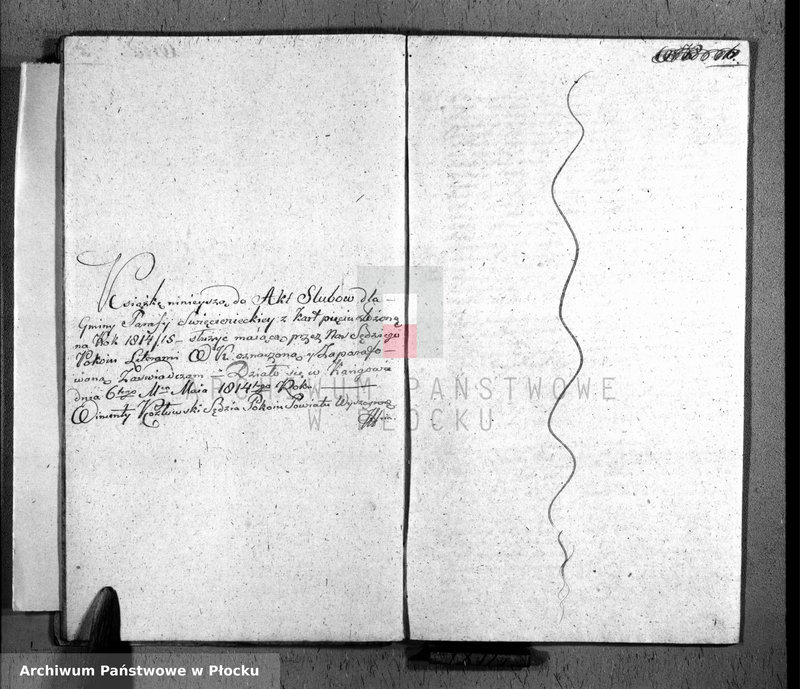 Książkę ninieyszą do Akt Slubow dla
Gminy Parafij Swięcienieckiey z kart pięciu złożoną
na Rok 1814/15 – służyc maiącą przez Nas Sędziego
Pokoiu Literami W K oznaczoną y Zaparafo
waną Zaswiadczam – Działo się w
dnia 6tego Mca Maia 1814tego Roku
Wincenty Kozłowski Sędzia Pokoiu Powiatu Wyszogrodz
ARCHIWUM PAŃSTWOWE
W PŁOCKU
Archiwum Państwowe w Płocku